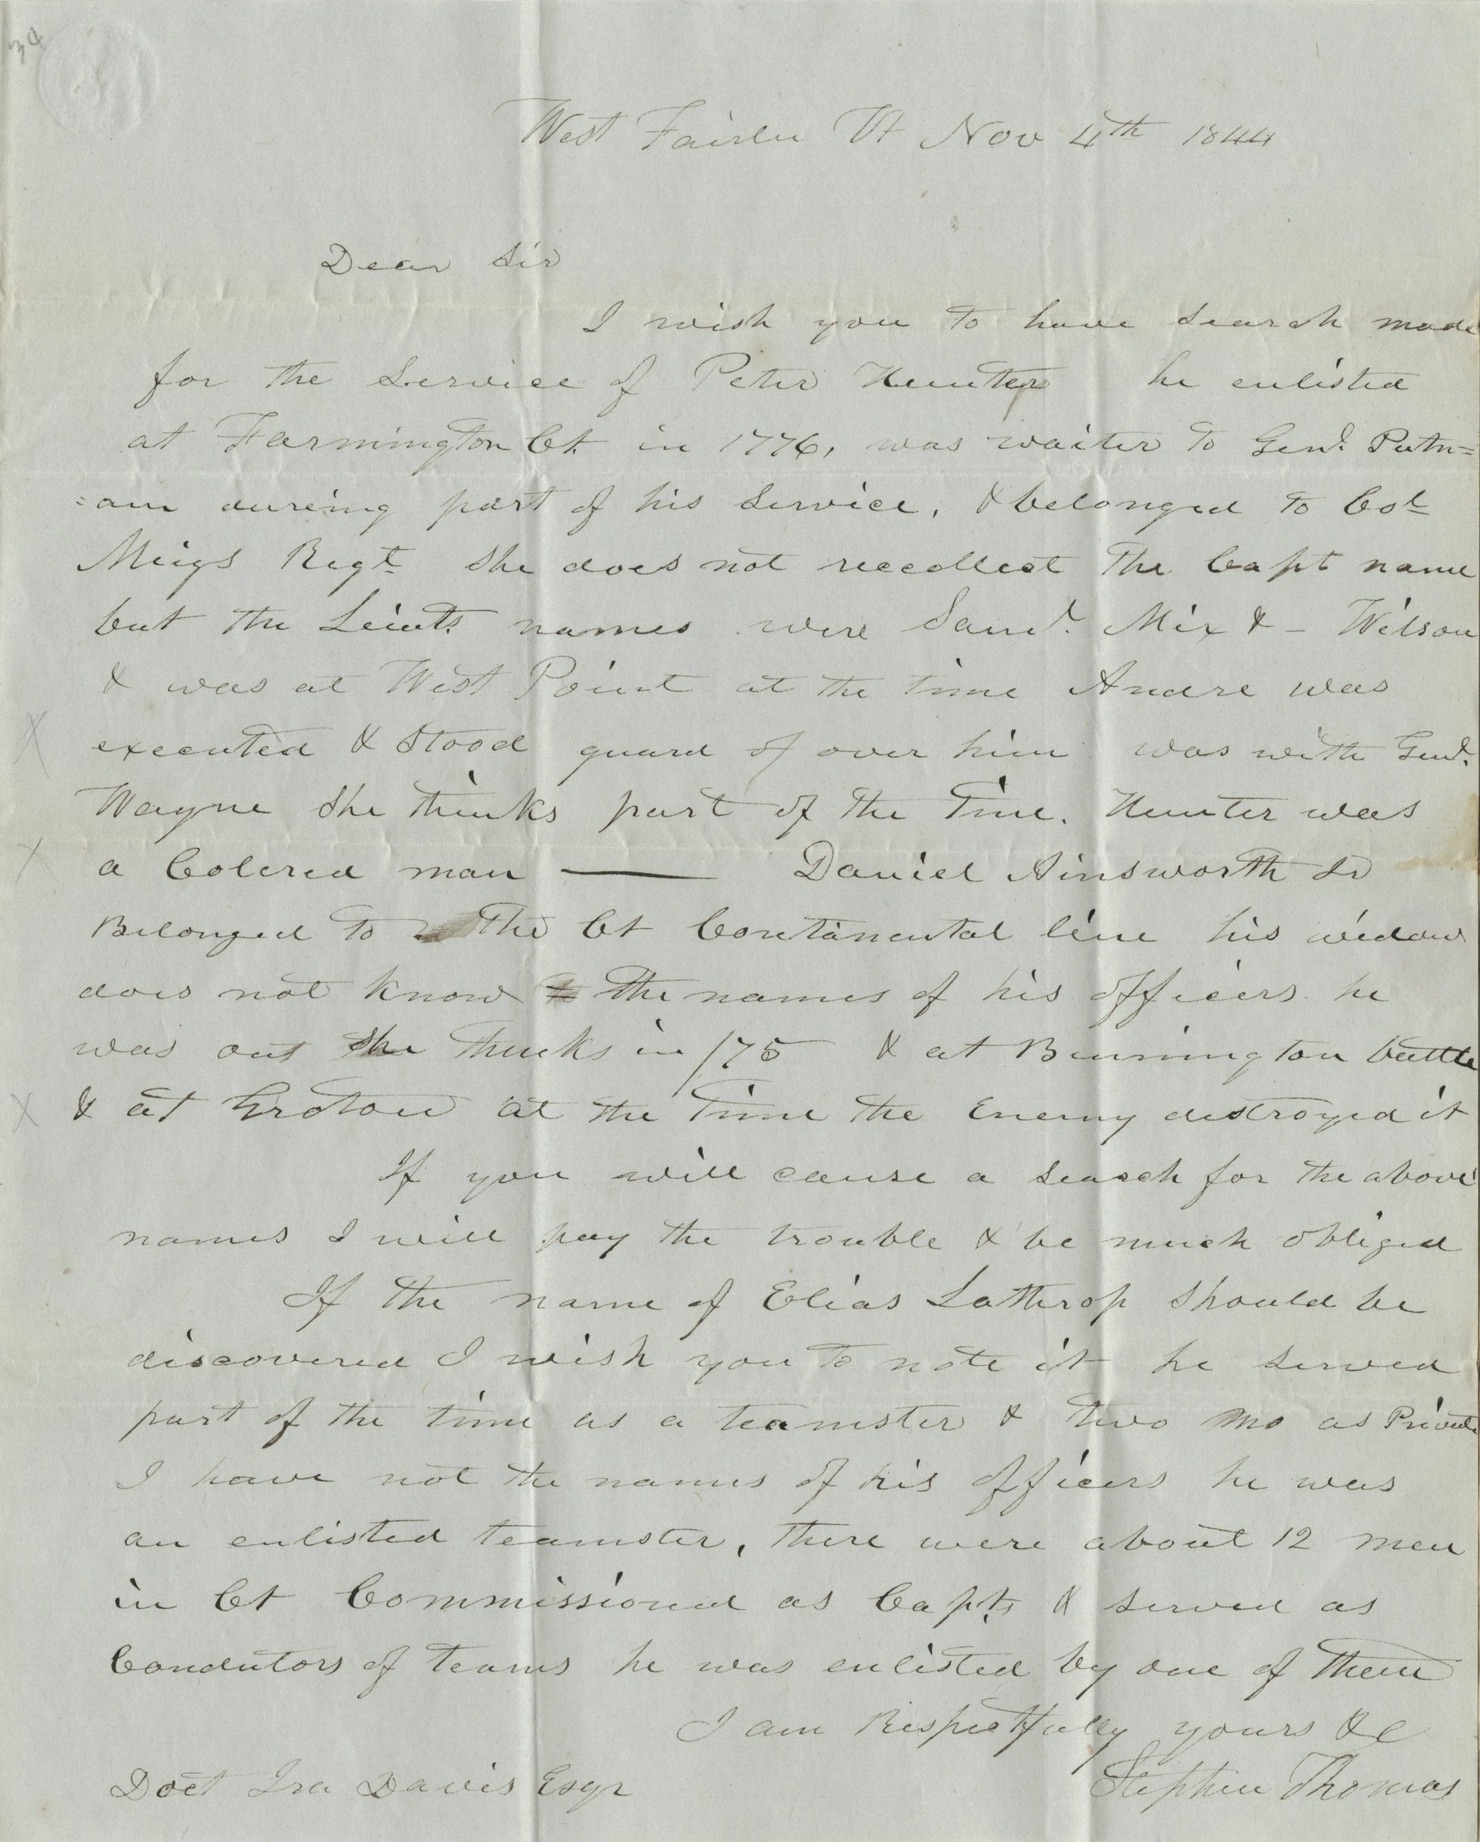 34
West Fairlee Vt Nov 4th 1844
Dear Sir
I wish you to have search made
for the Service of Peter Hunter he enlisted
at Farmington Ct. in 1776, was waiter to Genl. Putn=
=am dureing part of his Service, & belonged to Col
Meigs Regt She does not reccollect the Capt name
but the Leiuts. names were Saml. Mix & – Wilson
& was at West Point at the time Andre was
executed & Stood guard of over him was with Genl.
Wayne She thinks part of the Time. Hunter was
a Colered man — Daniel Ainsworth Sr
Belonged to the Ct Contanental line his widow
does not know the names of his officers. he
was out She thinks in /75 & at Bennington battle
& at Groton at the Time the Enemy destroyed it
If you will cause a search for the above
names I will pay the trouble & be much obliged
If the name of Elias Lathrop Should be
discovered I wish you to note it he served
part of the time as a teamster & two mo as Private
I have not the names of his officers he was
an enlisted teamster, there were about 12 men
in Ct Commissioned as Capts & served as
Condutors of teams he was enlisted by one of them
I am Respectfully yours &c
Doct Ira Davis Esqr Stephen Thomas